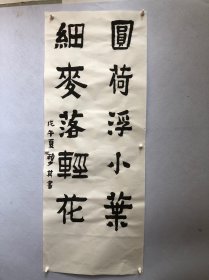 圓荷浮小葉
細麥落輕花
戊午夏
書